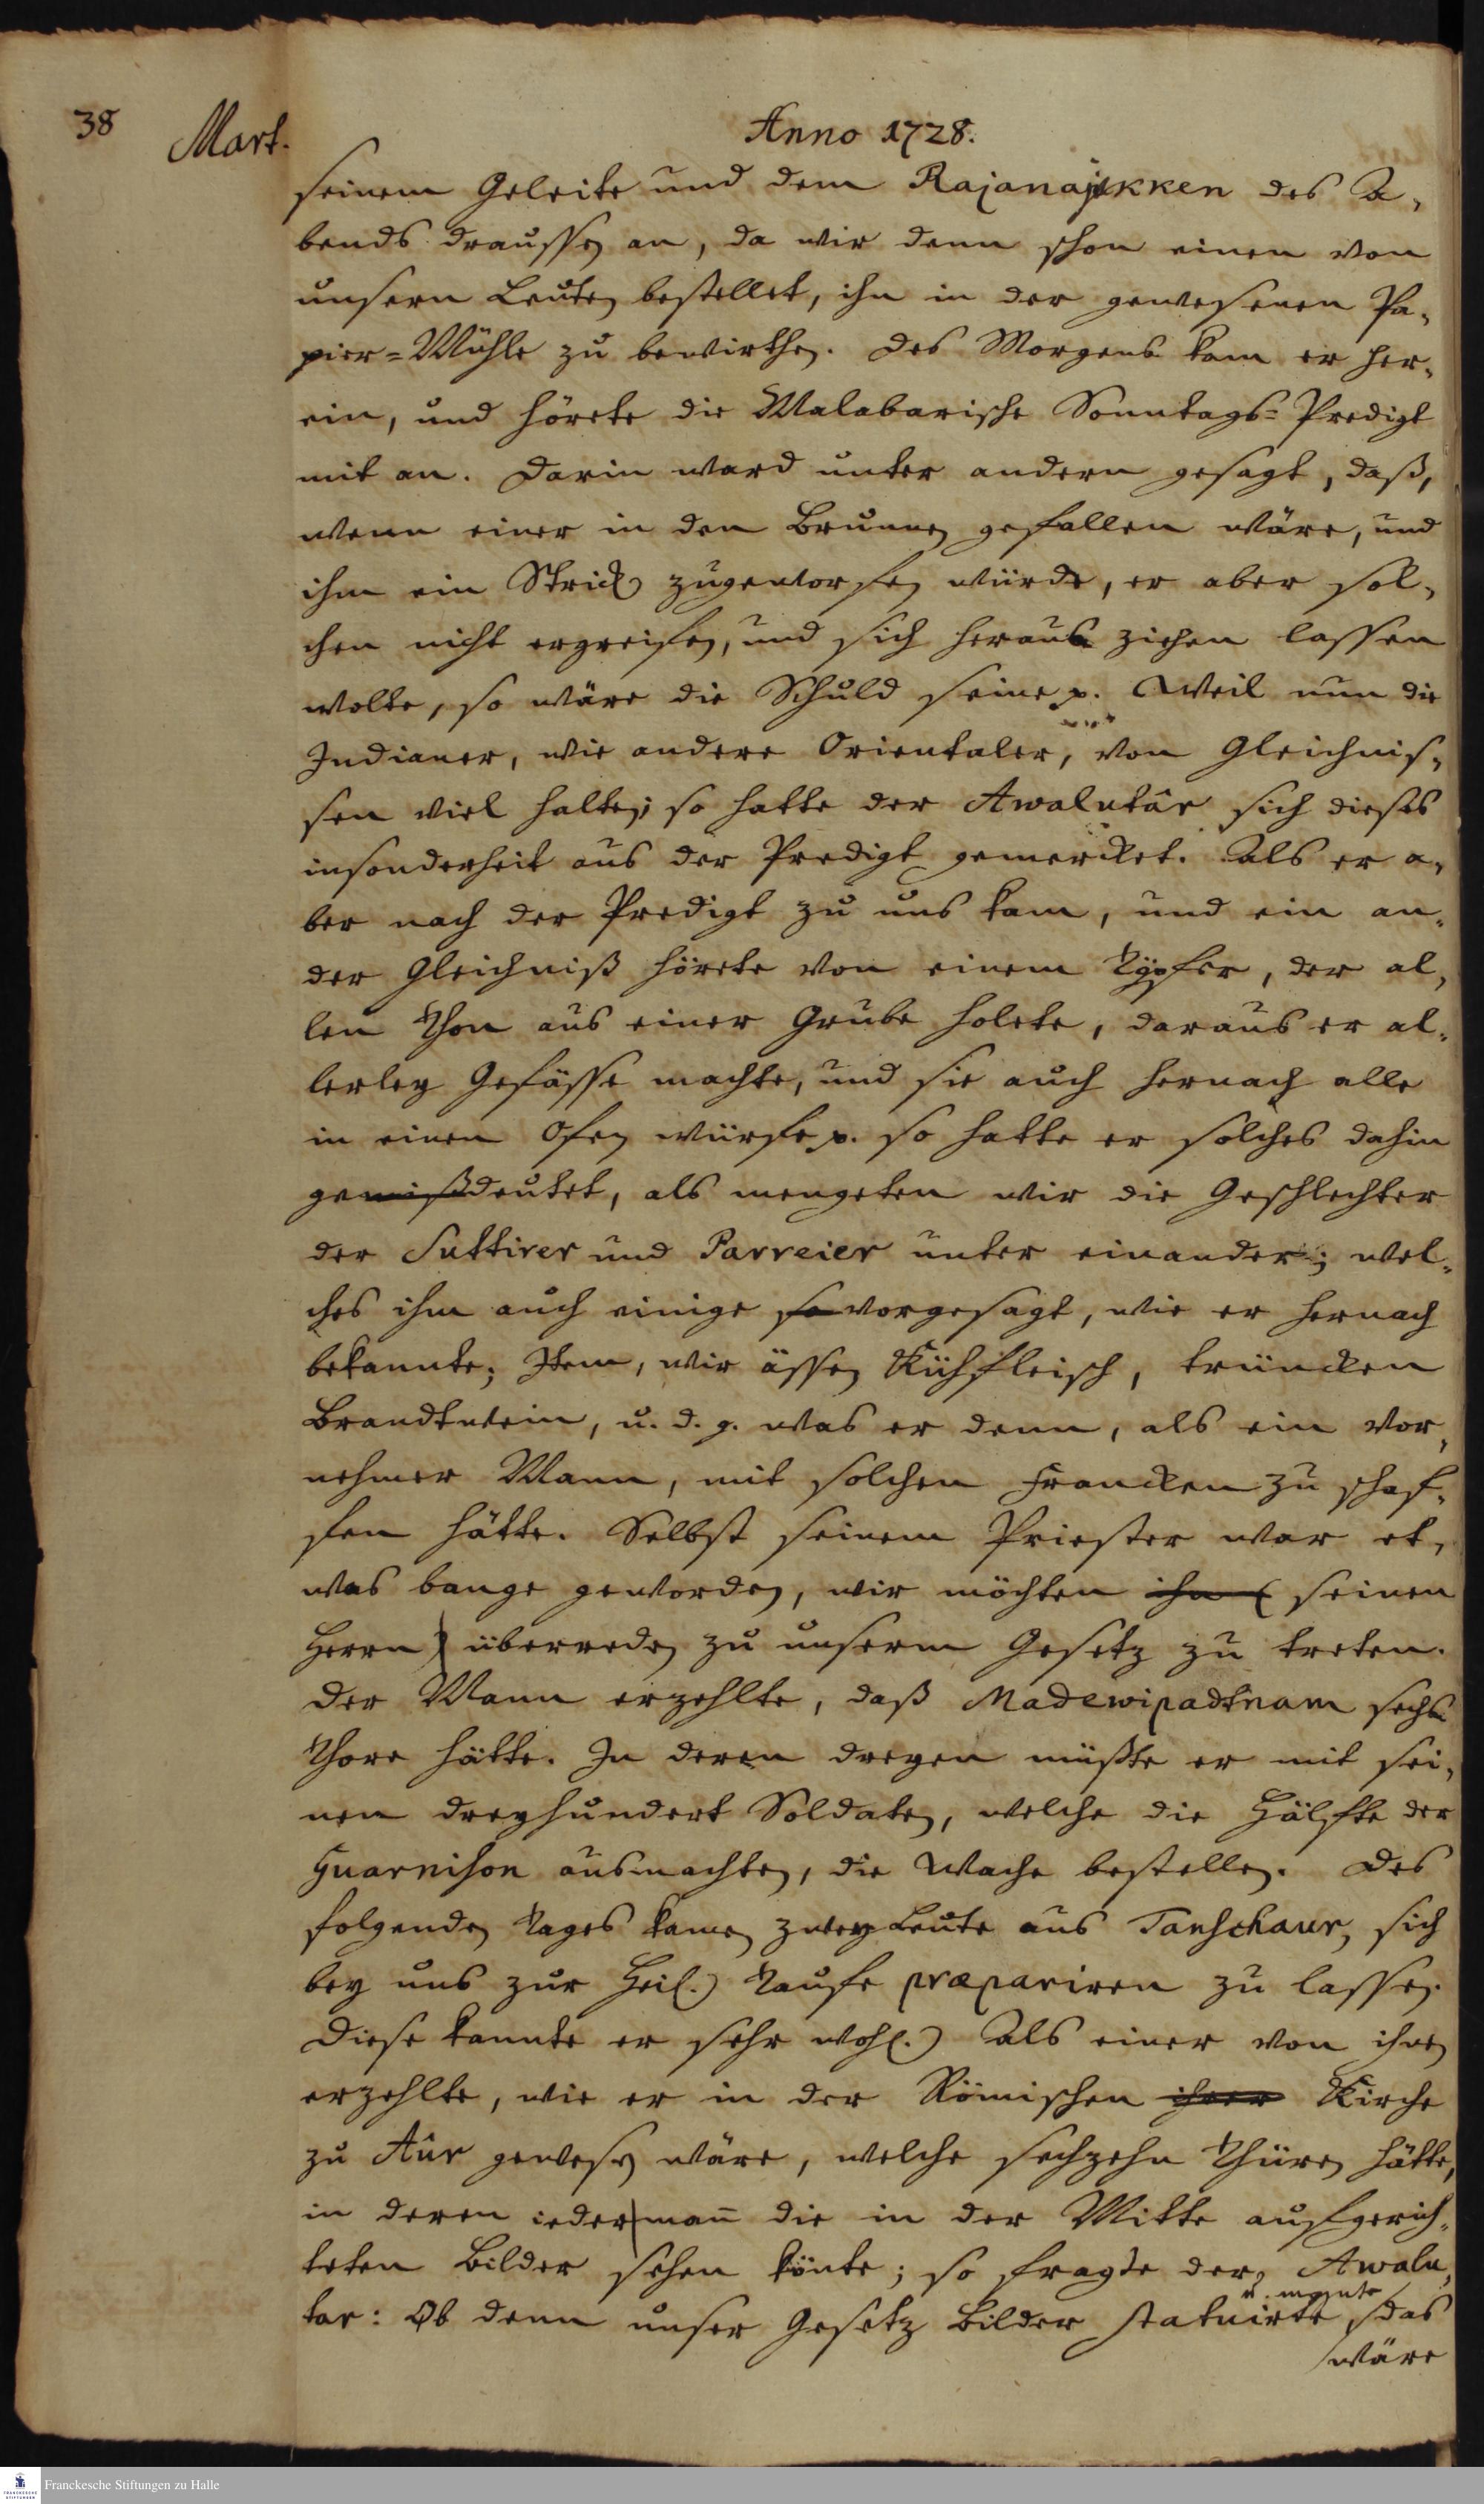 38
Mart.
Anno 1728.
seinem Geleite und dem Rajanajekken des A-
bends draussen an, da wir denn schon einen von
unsern Leuten bestellet, ihn in der gewesenen Pa-
pier-Mühle zu bewirthen. Des Morgens kam er her-
ein, und hörete die Malabarische Sonntags-Predigt
mit an. Darin ward unter andern gesagt, daß,
wenn einer in den Brunnen gefallen wäre, und
ihm ein Strick zugeworfen würde, er aber sol-
chen nicht ergreifen, und sich heraus ziehen lassen
wolte, so wäre die Schuld seine p. Weil nun die
Indianer, wie andere Orientaler, von Gleichnis-
sen viel halten; so hatte der Awalutâr sich dieses
insonderheit aus der Predigt gemercket. Als er a-
ber nach der Predigt zu uns kam, und ein an-
der Gleichniß hörete von einem Töpfer, der al-
len Thon aus einer Grube holete, daraus er al-
lerley Gefässe machte, und sie auch hernach alle
in einen Ofen würfe p. so hatte er solches dahin
gemißdeutet, als mengeten wir die Geschlechter
der Suttirer und Parreier unter einander; wel-
ches ihm auch einige so vorgesagt, wie er hernach
bekannte; Item, wir ässen Kühfleisch, trüncken
Brandtwein, u. d. g. was er denn, als ein vor-
nehmer Mann, mit solchen Francken zu schaf-
fen hätte. Selbst seinem Priester war et-
was bange geworden, wir möchten ihn (seinen
Herrn) überreden zu unserm Gesetz zu treten.
Der Mann erzehlte, daß Madewipadtnam sechs
Thore hätte. In deren dreyen müßte er mit sei-
nen dreyhundert Soldaten, welche die Hälfte der
Guarnison ausmachten, die Wache bestellen. Des
folgenden Tages kamen zwey Leute aus Tanschaur, sich
bey uns zur Heil. Taufe præpariren zu lassen.
Diese kannte er sehr wohl. Als einer von ihnen
erzehlte, wie er in der Römischen ihrer Kirche
zu Aûr gewesen wäre, welche sechzehn Thüren hätte,
in deren iederman̄ die in der Mitte aufgerich-
teten Bilder sehen könte; so fragte der Awalu-
tar: Ob denn unser Gesetz Bilder statuirte, das
wäre